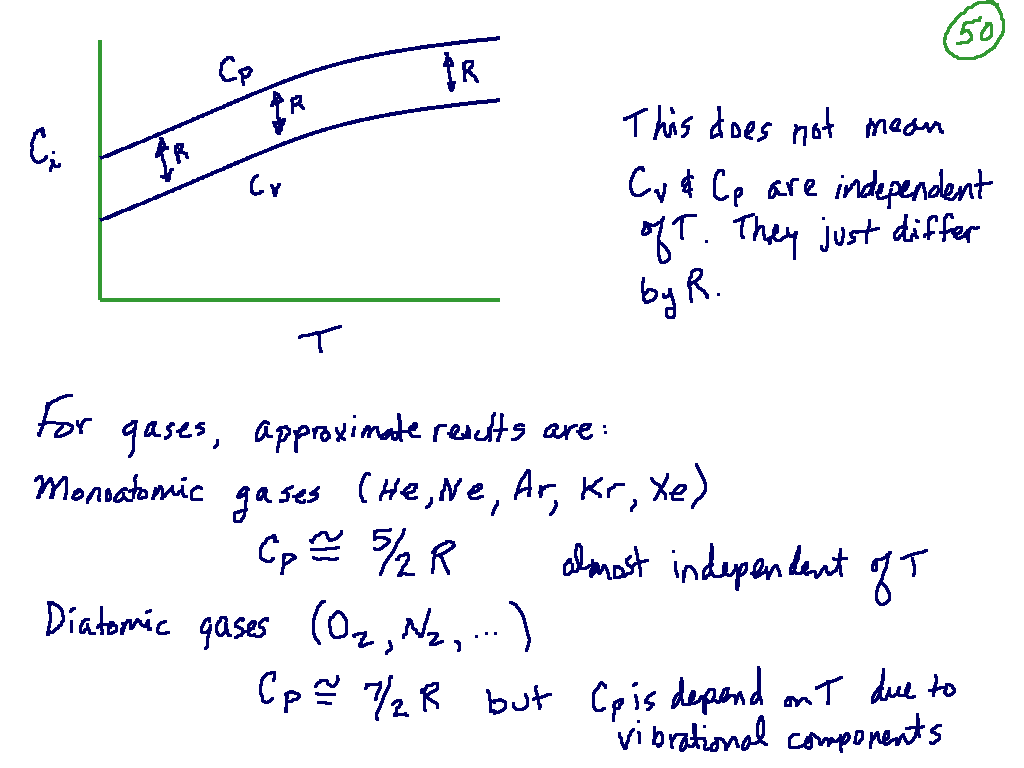 50
Cp
R
R
R
Ci
Cv
T
This does not mean
Cv & Cp are independent
of T. They just differ
by R.
For gases, approximate results are:
Monoatomic gases (He, Ne, Ar, Kr, Xe)
Cp ≅ 5/2 R almost independent of T
Diatomic gases (O2, N2, ...)
Cp ≅ 7/2 R but Cp is depend on T due to
vibrational components